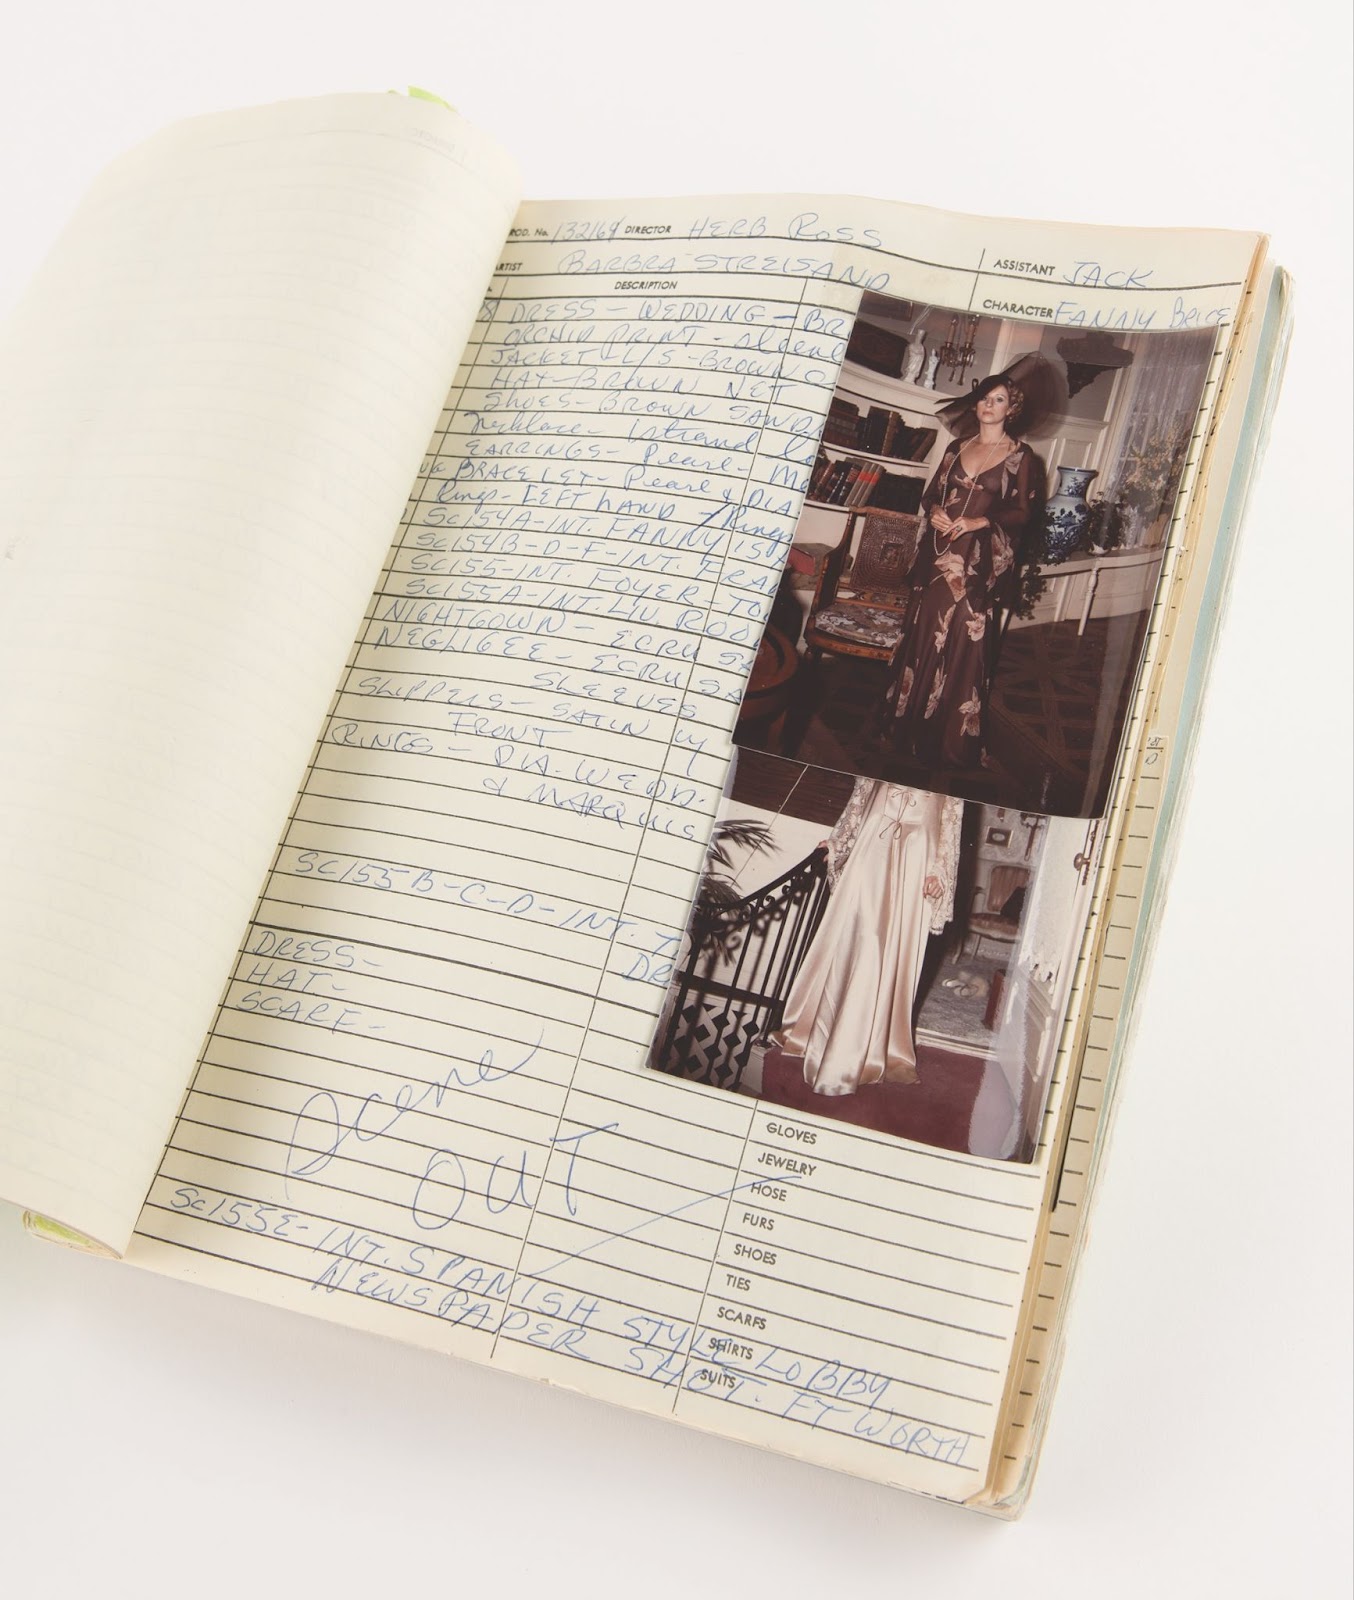 PROD. No. 132164 DIRECTOR HERB ROSS
ARTIST BARBRA STREISAND
ASSISTANT JACK
DESCRIPTION
CHARACTER FANNY BRICE
DRESS - WEDDING - BR
ORCHID PRINT -
JACKET - L/S - BROWN
HAT - BROWN NET
SHOES - BROWN SAND
Necklace - 1 strand
EARRINGS - Pearl -
BRACELET - Pearl & DIA
Rings - LEFT HAND - Rings
SC154A - INT. FANNY'S
SC154B - D - F - INT.
SC155 - INT. FOYER - TO
SC155A - INT. LIV. ROO
NIGHTGOWN - ECRU
NEGLIGEE - ECRU SA
SLEEVES
SLIPPERS - SATIN W
FRONT
RINGS - DIA. WEDD.
& MARQUIS
SC155 B - C - D - INT.
DR
DRESS -
HAT -
SCARF -
Scene
OUT
GLOVES
JEWELRY
HOSE
FURS
SHOES
TIES
SCARFS
SHIRTS
SUITS
SC155E - INT. SPANISH STYLE LOBBY
NEWSPAPER SHOT. FT WORTH